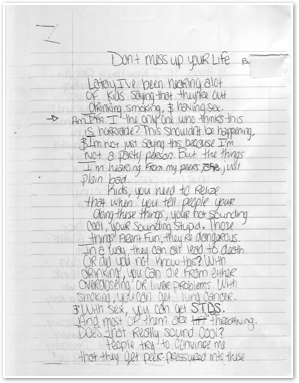 Don't mess up your Life By
Lately I've been hearing alot
OF Kids saying that they're out
drinking, smoking, & having sex.
Am I the only one who thinks this
is horrible? This shouldn't be happening,
& I'm not just saying this because I'm
Not a party person. But the things
I'm hearing from my peers, just
plain bad.
Kids, you need to Relize
that when you tell people your
doing these things, your not sounding
Cool, your Sounding Stupid. Those
things Arent Fun, they're dangerous.
In a way, they can all lead to death
Or did you not know this? With
drinking, you can die from either
overdosing or liver problems. With
smoking, you can get lung cancer.
& With Sex, you can get STDS.
And most of them are threatning.
Does that Really sound Cool?
People try to Convince me
that they get peer pressured into these